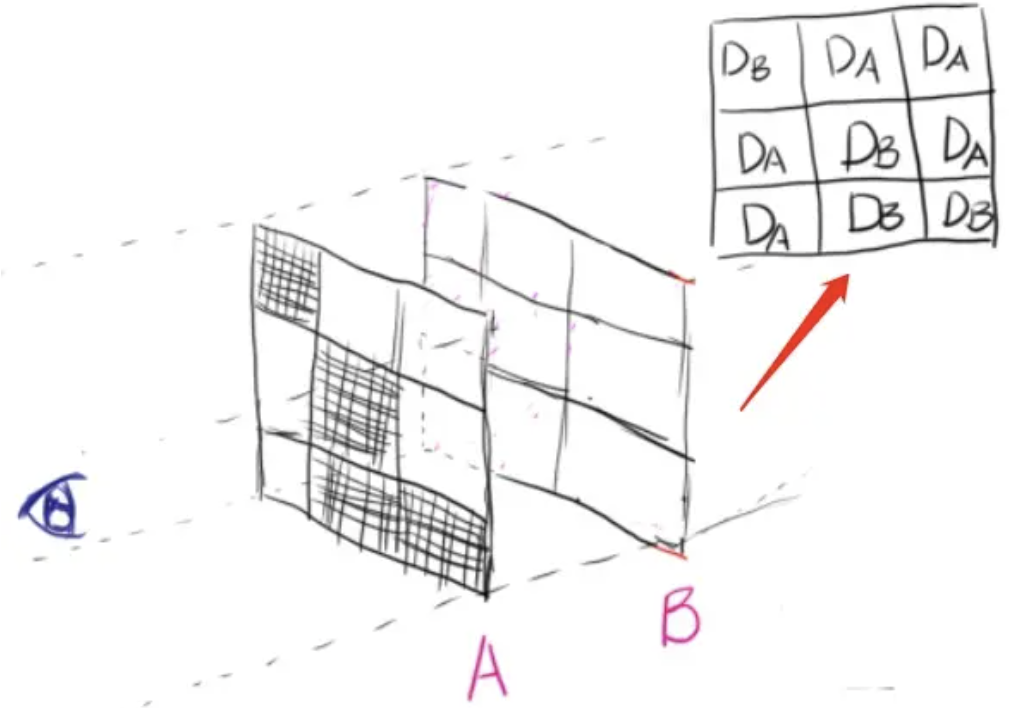 DB DA DA
DA DB DA
DA DB DB
A
B